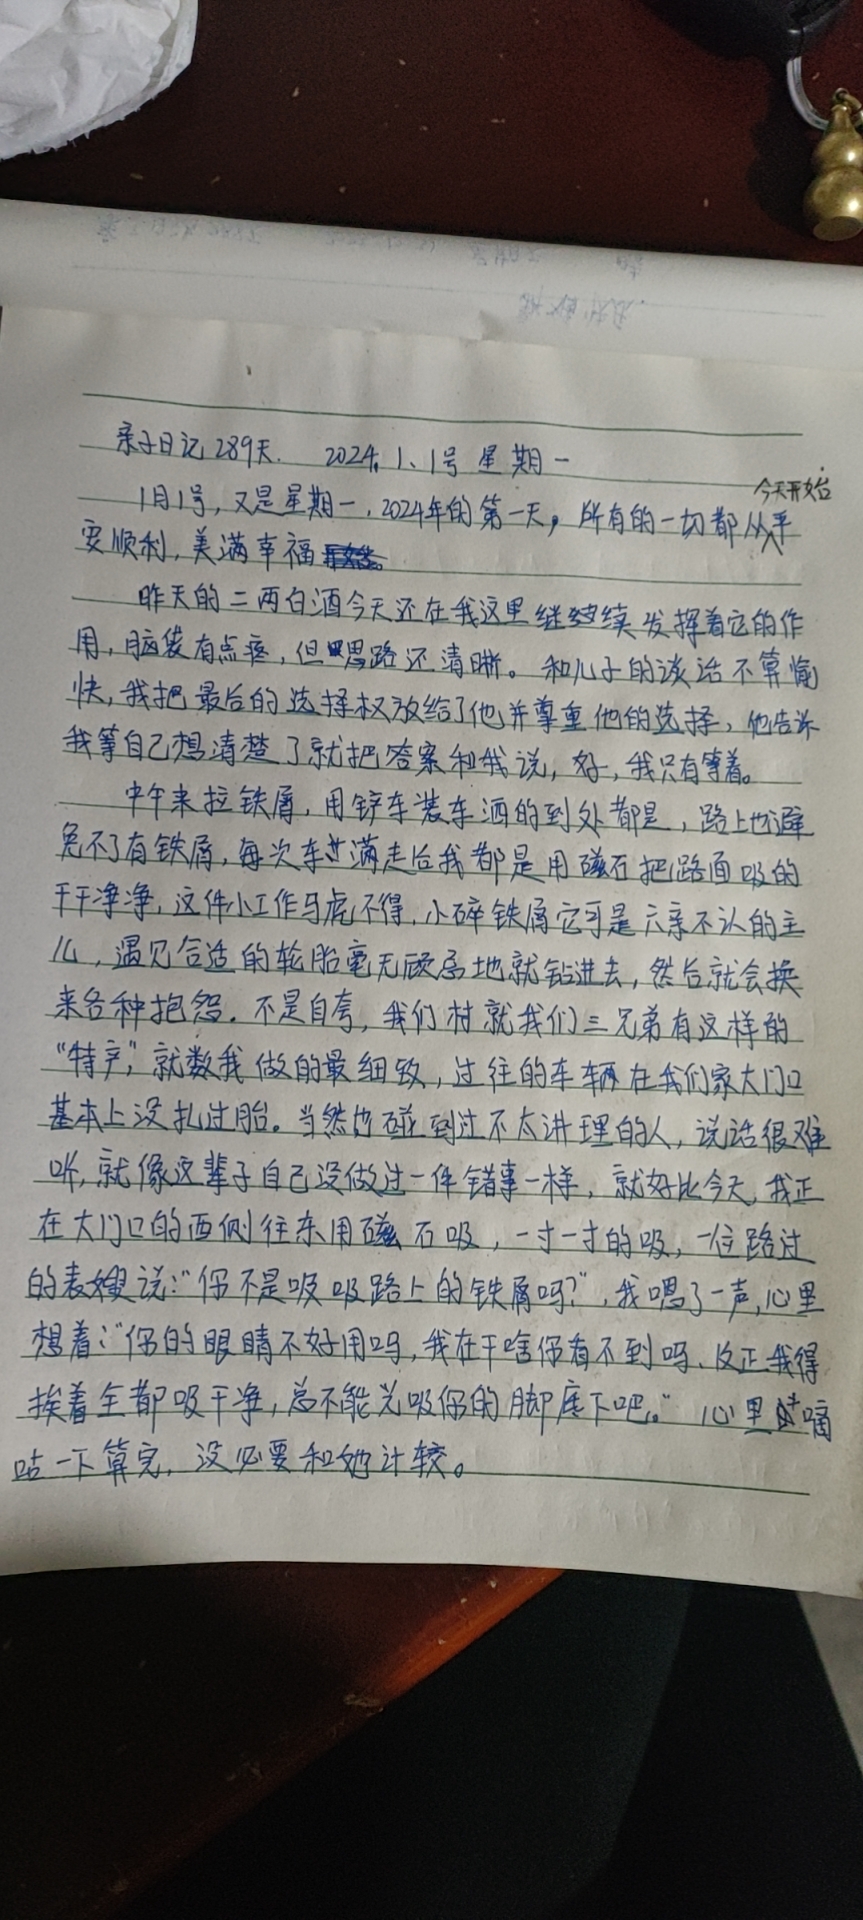 亲子日记289天. 2024.1、1号 星期一
1月1号，又是星期一，2024年的第一天，所有的一切都从今天开始平
安顺利，美满幸福。
昨天的二两白酒今天还在我这里继续续发挥着它的作
用，脑袋有点疼，但思路还清晰。和儿子的谈话不算愉
快，我把最后的选择权放给了他并尊重他的选择，他告诉
我等自己想清楚了就把答案和我说，好，我只有等着。
中午来拉铁屑，用铲车装车洒的到处都是，路上也避
免不了有铁屑，每次车装满走后我都是用磁石把路面吸的
干干净净，这件小工作马虎不得，小碎铁屑它可是六亲不认的主
儿，遇见合适的轮胎毫无顾忌地就钻进去，然后就会换
来各种抱怨。不是自夸，我们村就我们三兄弟有这样的
“特产”，就数我做的最细致，过往的车辆在我们家大门口
基本上没扎过胎。当然也碰到过不太讲理的人，说话很难
听，就像这辈子自己没做过一件错事一样，就好比今天，我正
在大门口的西侧往东用磁石吸，一寸一寸的吸，一位路过
的表嫂说：“你不是吸吸路上的铁屑吗？”，我嗯了一声，心里
想着：“你的眼睛不好用吗，我在干啥你看不到吗、反正我得
挨着全都吸干净，总不能光吸你的脚底下吧。”心里嘀
咕一下算完，没必要和她计较。